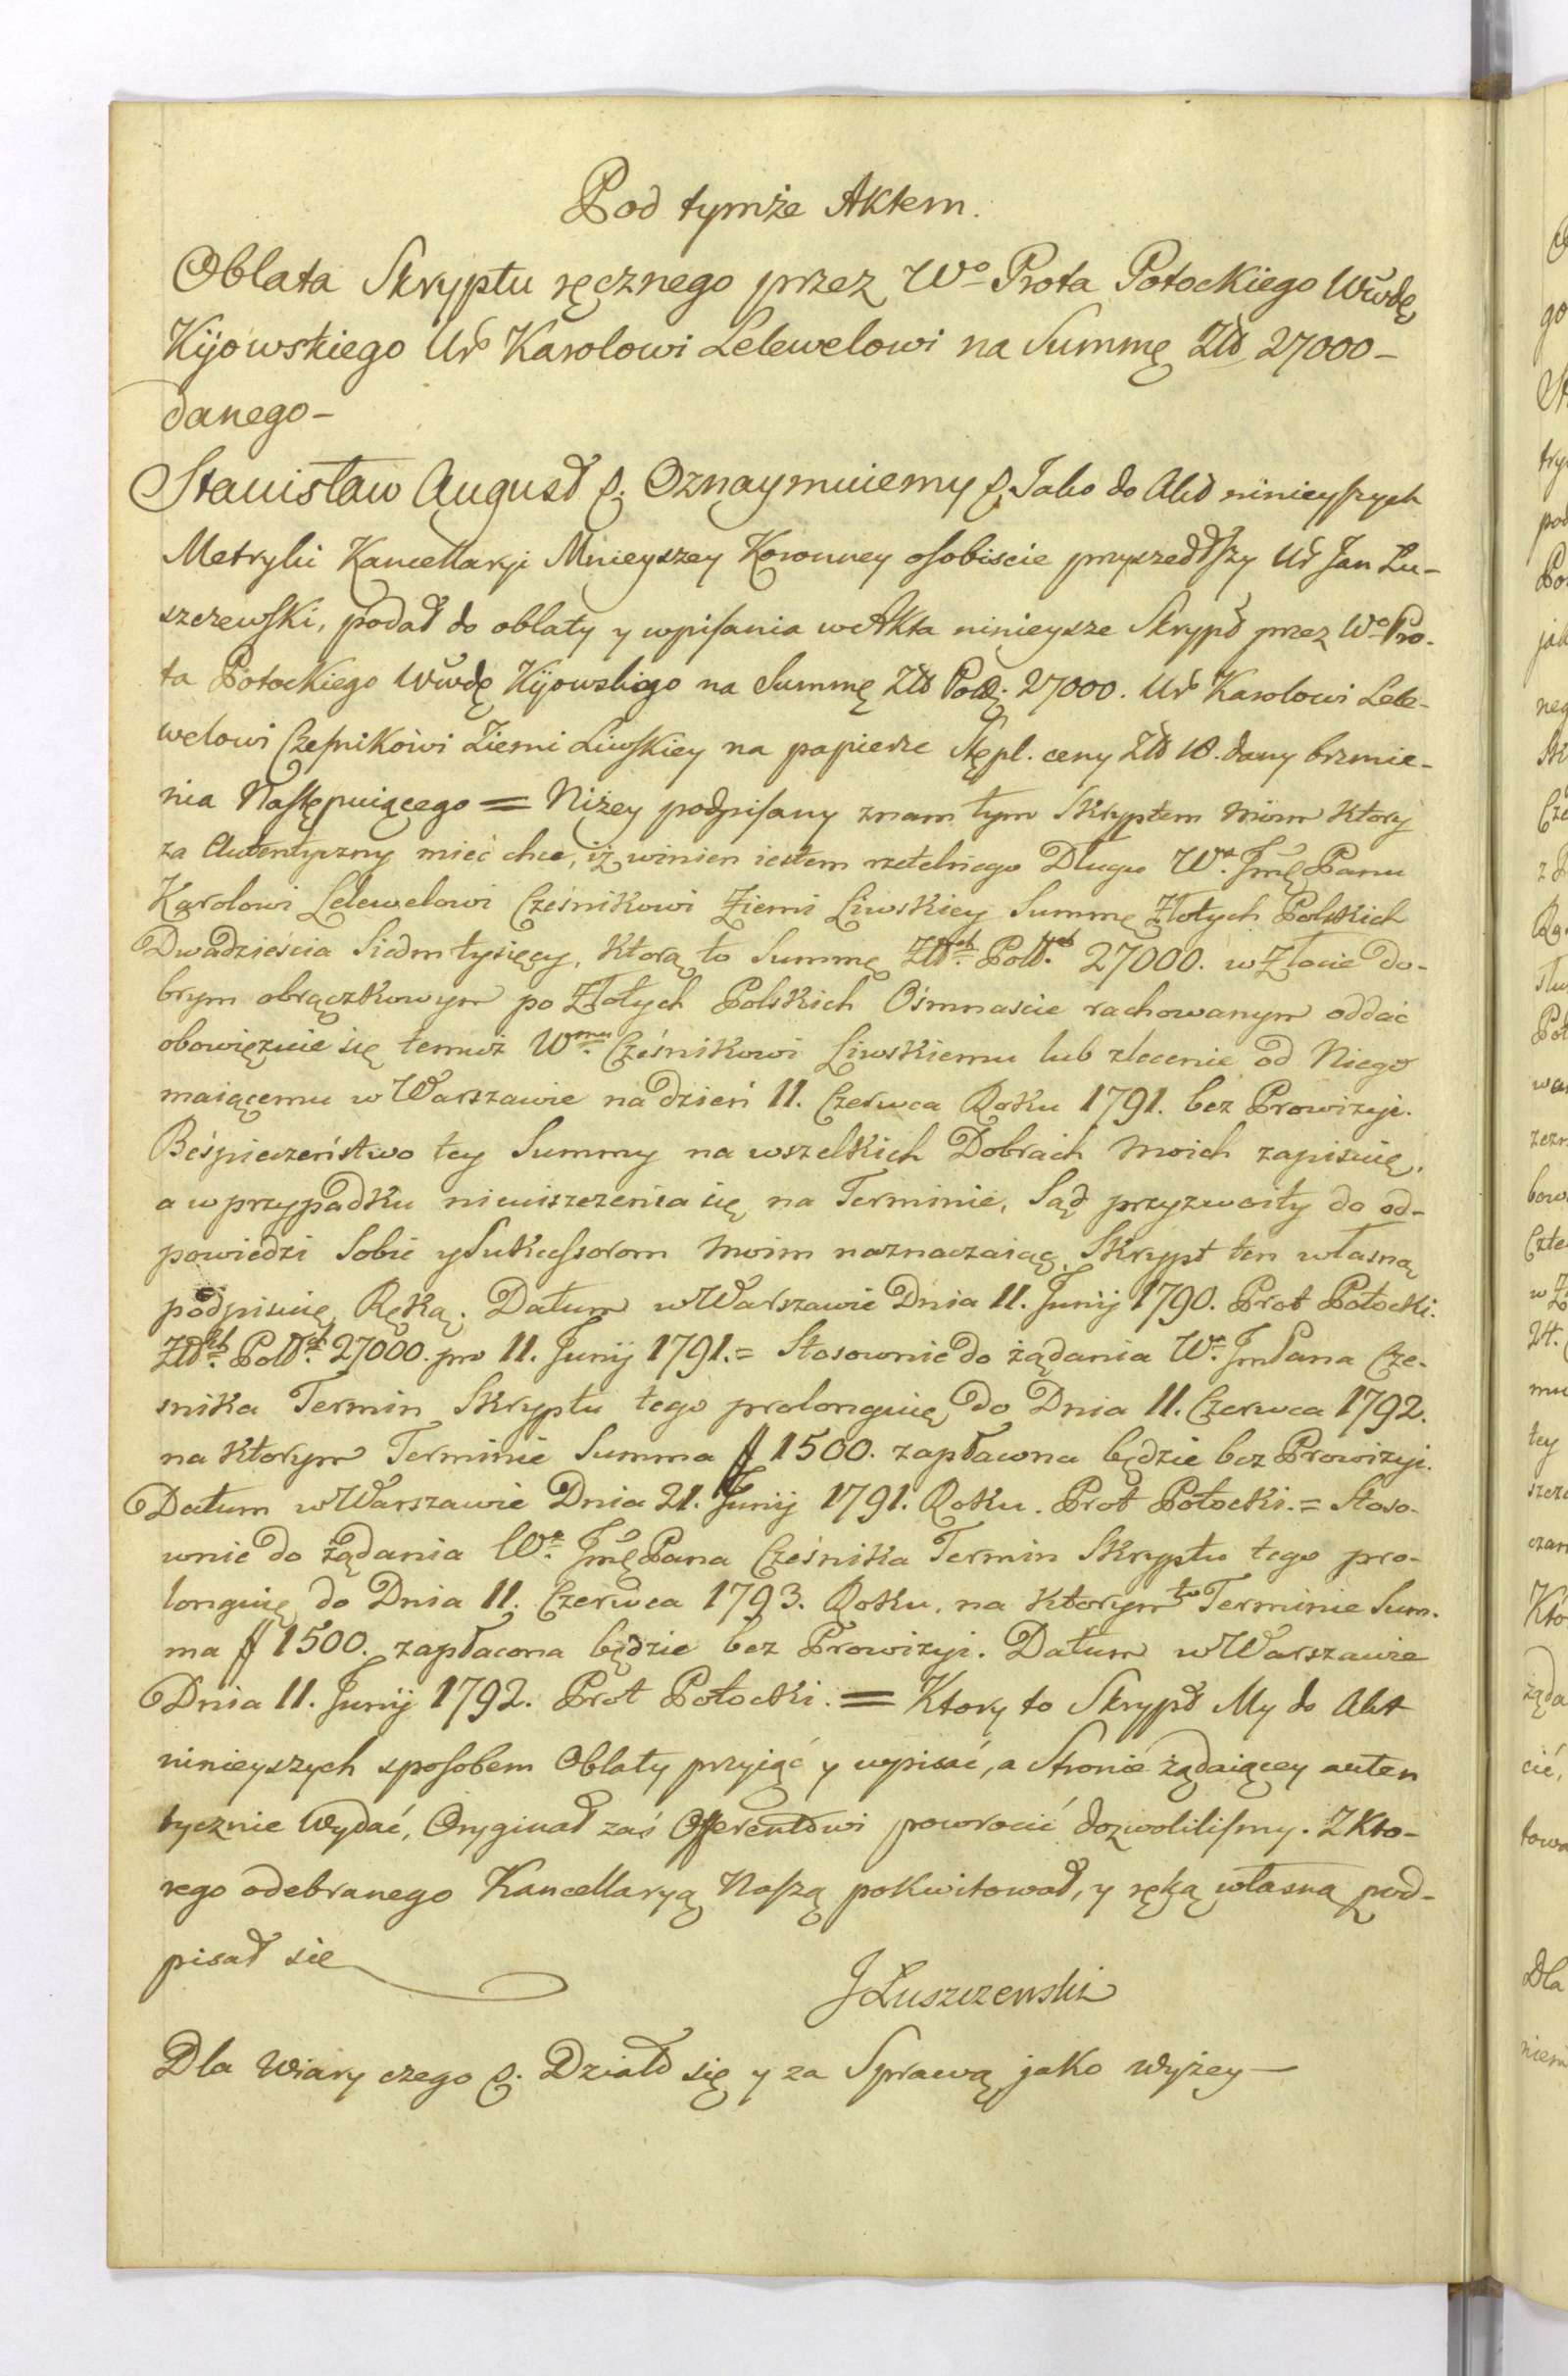 Pod tymże Aktem.
Oblata Skryptu ręcznego przez Wo Prota Potockiego Wwdę
Kijowskiego Ur Karolowi Lelewelowi na Summę Złł 27000 –
danego –
Stanisław August &. Oznaymuiemy &. Jako do Akt ninieyszych
Metryki Kancellaryi Mnieyszey Koronney osobiscie przyszedłszy Ur Jan Łu-
szczewski, podał do oblaty y wpisania w Akta ninieysze Skrypt przez Wo Pro-
ta Potockiego Wwdę Kijowskiego na Summę Złł Pol. 27000. Ur Karolowi Lele-
welowi Cześnikowi Ziemi Liwskiey na papierze Stępl. ceny Złł 18. dany brzmie-
nia Następuiącego = Niżey podpisany znam tym Skryptem moim ktory
za Autentyczny mieć chce, iż winien iestem rzetelnego Długu Wu. Jmę Panu
Karolowi Lelewelowi Cześnikowi Ziemi Liwskiey Summę Złotych Polskich
Dwadzieścia Siedm tysięcy, ktorą to Summę Złłch. Polłch. 27000. w Złocie do-
brym obrączkowym po Złotych Polskich Ośmnaście rachowanym oddać
obowięzuie się temuż Wmu. Cześnikowi Liwskiemu lub zlecenie od Niego
maiącemu w Warszawie na dzień 11. Czerwca Roku 1791. bez Prowizyi.
Beśpieczeństwo tey Summy na wszelkich Dobrach moich zapisuię,
a w przypadku nieuiszczenia się na Terminie, Sąd przyzwoity do od-
powiedzi Sobie y Sukcessorom moim naznaczaiąc, Skrypt ten własną
podpisuię Ręką. Datum w Warszawie Dnia 11. Junij 1790. Prot Potocki.
Złłch. Polłch. 27000. pro 11. Junij 1791. = Stosownie do żądania Wo. Jm Pana Cze-
snika Termin Skryptu tego prolonguię do Dnia 11. Czerwca 1792.
na ktorym Terminie Summa ff 1500. zapłacona będzie bez Prowizyi.
Datum w Warszawie Dnia 21. Junij 1791. Roku. Prot Potocki. = Stoso-
wnie do żądania Wo. Jmę Pana Cześnika Termin Skryptu tego pro-
longuię do Dnia 11. Czerwca 1793. Roku, na ktorym to Terminie Sum-
ma ff 1500. zapłacona będzie bez Prowizyi. Datum w Warszawie
Dnia 11. Junij 1792. Prot Potocki. = Ktory to Skrypt My do Akt
ninieyszych sposobem Oblaty przyiąć y wpisać, a Stronie żądaiącey auten
tycznie wydać, Oryginał zaś Offerentowi powrocić dozwolilismy. Z Kto-
rego odebranego Kancellaryą Naszą pokwitował, y ręką własną pod-
pisał się
JŁuszczewski
Dla Wiary czego &. Działo się y za Sprawą jako wyżey –